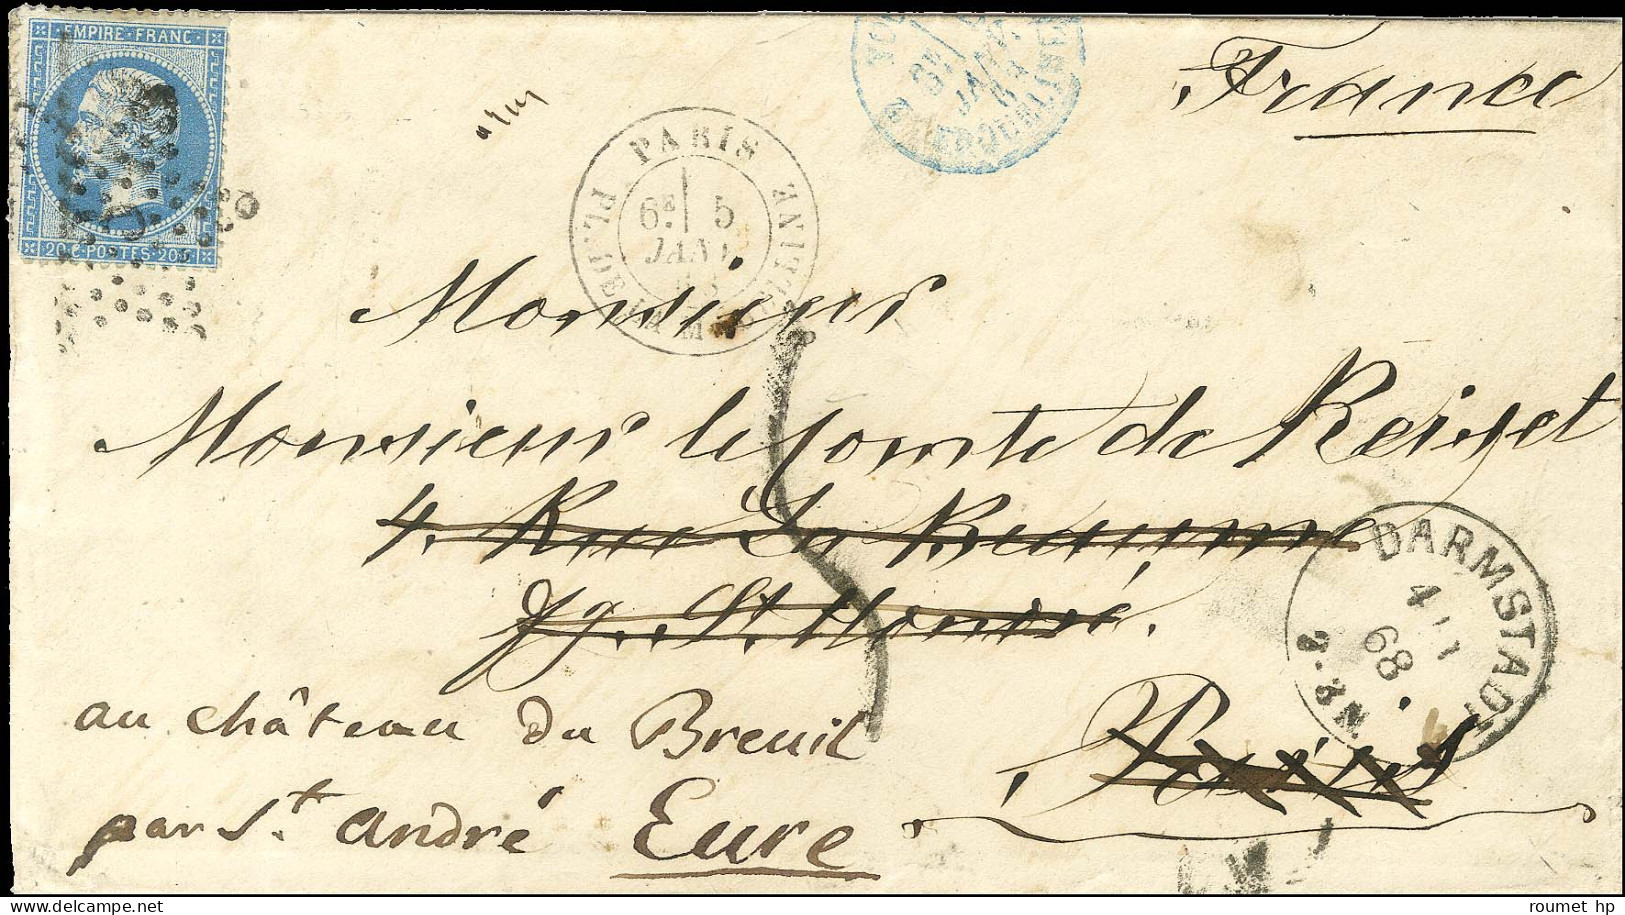 EMPIRE·FRANC·
20·C·POSTES·20·C
6E 5
JANV.
PARIS
PL. DE LA MADELEINE
France
Monsieur
Monsieur le Comte de Reiset
4. Rue La Beaume
fg. St. Honoré.
Paris
au château du Breuil
par St. André Eure
DARMSTADT
4 1
68
N2-3
roumet hp